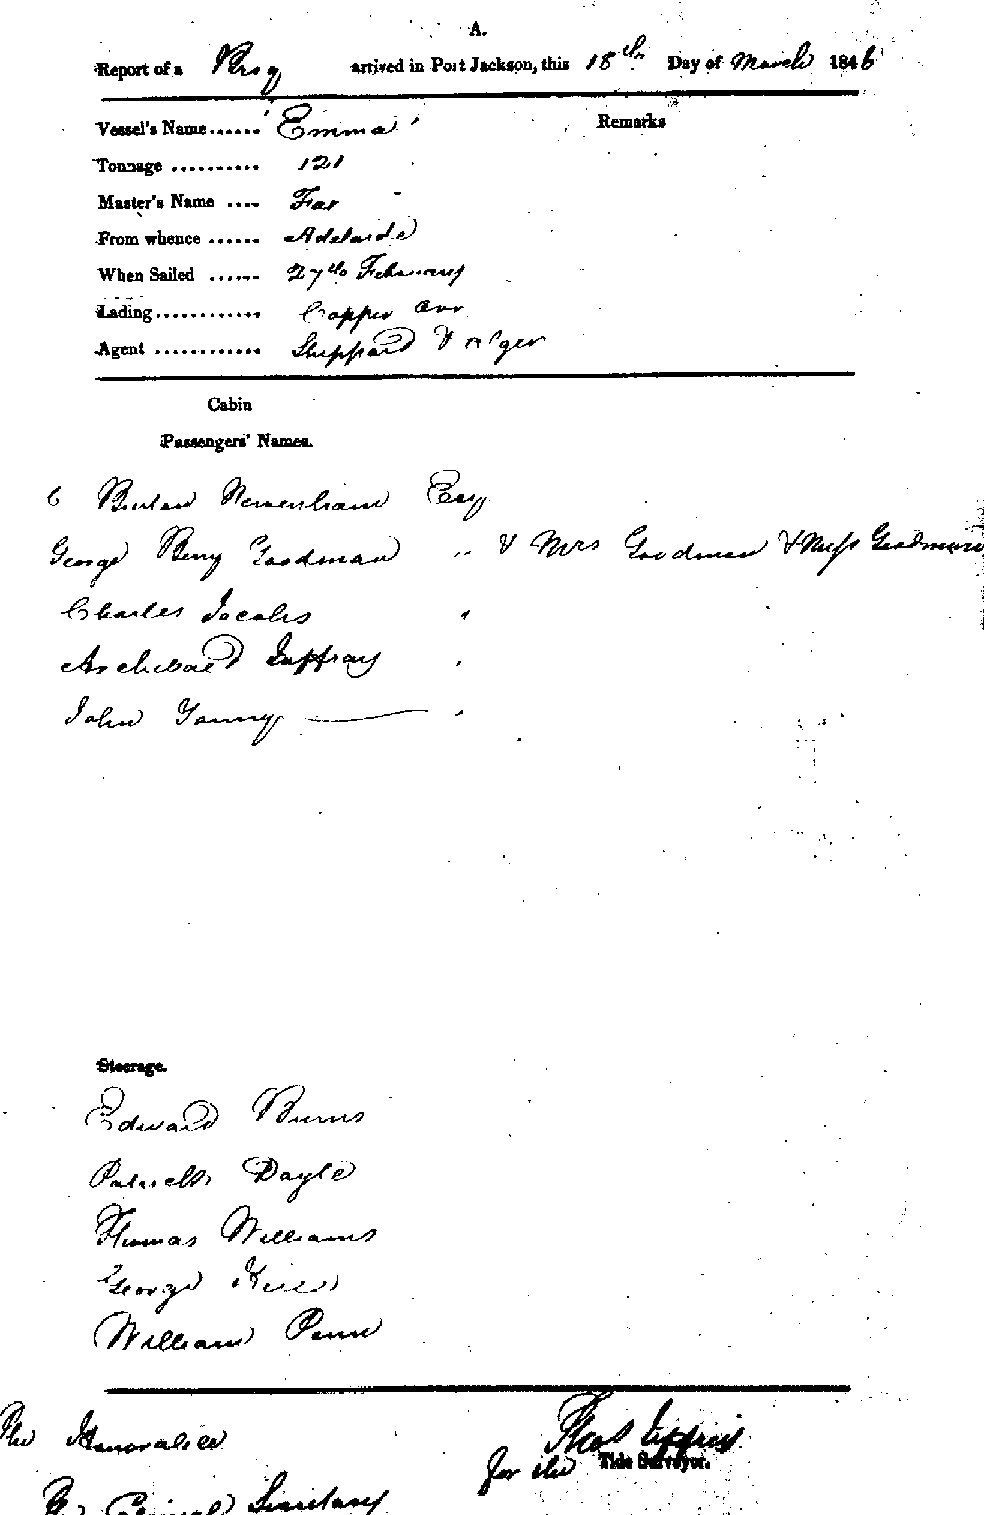 A.
Report of a Brig arrived in Port Jackson, this 18th Day of March 1846
Vessel's Name...... Emma
Remarks
Tonnage .......... 121
Master's Name .... Fox
From whence ...... Adelaide
When Sailed ...... 27th February
Lading............ Copper Ore
Agent ............ Sheppard &
Cabin
Passengers' Names.
C Burton Newenham Esq
George Berry Goodman " & Mrs Goodman & Miss Goodman
Charles Jacobs "
Archibald Jaffray "
John Young "
Steerage.
Edward Burns
Patrick Doyle
Thomas Williams
George
William Penn
The Honorable
Thos Jeffries
for the Tide Surveyor.
The Colonial Secretary